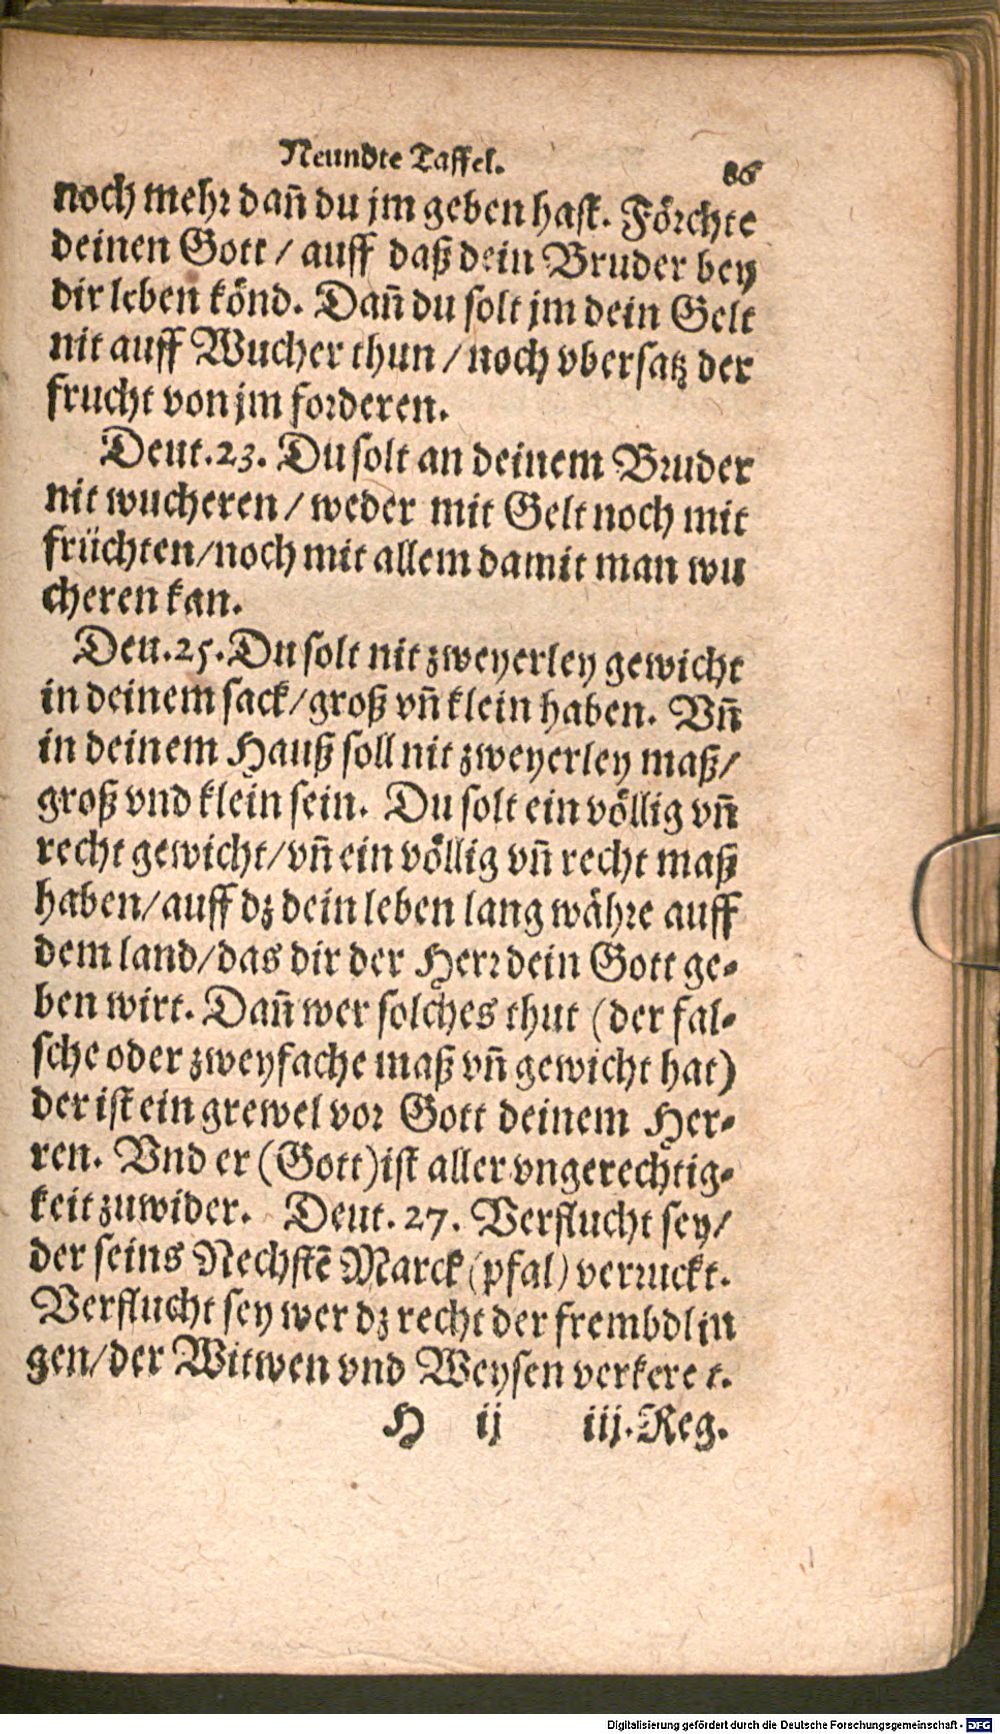 Neundte Taffel. 86
noch mehr dañ du jm geben hast. Förchte
deinen Gott / auff daß dein Bruder bey
dir leben könd. Dañ du solt jm dein Gelt
nit auff Wucher thun / noch vbersatz der
frucht von jm forderen.
Deut.23. Du solt an deinem Bruder
nit wucheren / weder mit Gelt noch mit
früchten/noch mit allem damit man wu
cheren kan.
Deu.25. Du solt nit zweyerley gewicht
in deinem sack/groß vñ klein haben. Vñ
in deinem Hauß soll nit zweyerley maß/
groß vnd klein sein. Du solt ein völlig vñ
recht gewicht/vñ ein völlig vñ recht maß
haben/auff dz dein leben lang währe auff
dem land/das dir der Herr dein Gott ge-
ben wirt. Dañ wer solches thut (der fal-
sche oder zweyfache maß vñ gewicht hat)
der ist ein grewel vor Gott deinem Her-
ren. Vnd er (Gott) ist aller vngerechtig-
keit zuwider. Deut. 27. Verflucht sey/
der seins Nechstẽ Marck (pfal) verruckt.
Verflucht sey wer dz recht der frembdlin
gen/der Witwen vnd Weysen verkeret.
H ij iij.Reg.
Digitalisierung gefördert durch die Deutsche Forschungsgemeinschaft - DFG